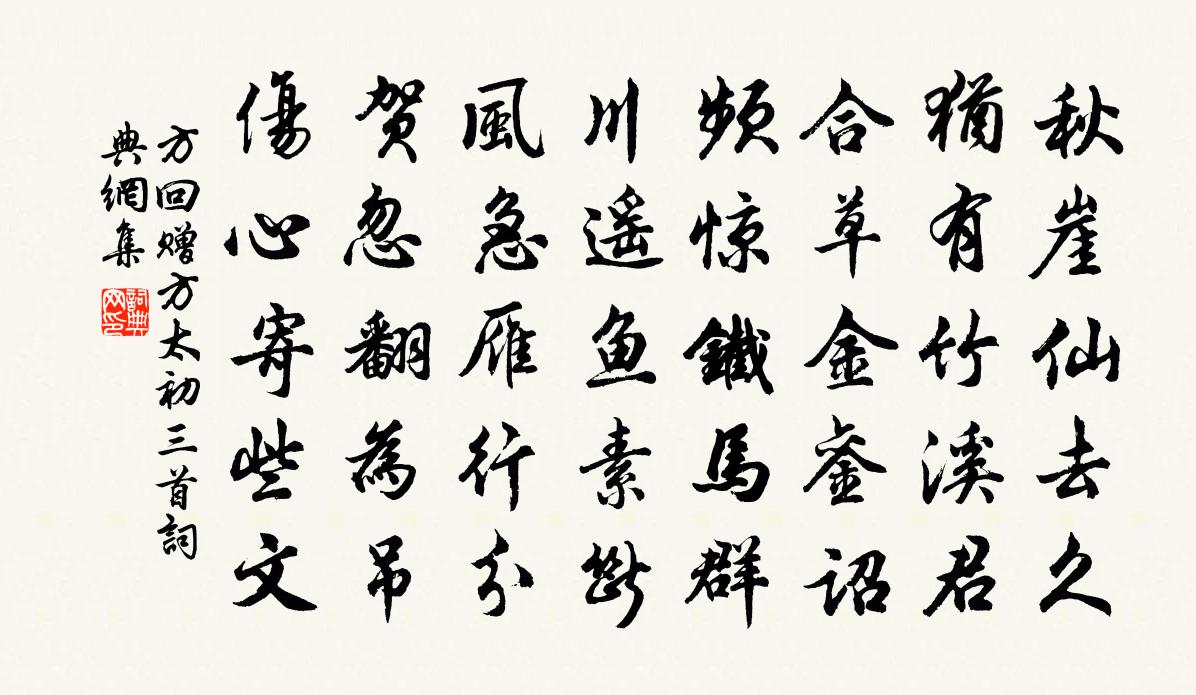 秋崖仙去久
猶有竹溪君
合草金鑾詔
頻惊鐵馬群
川遥鱼素斷
風急雁行分
贺忽翻為吊
傷心寄些文
方回赠方太初三首詞
典網集
詞典網印